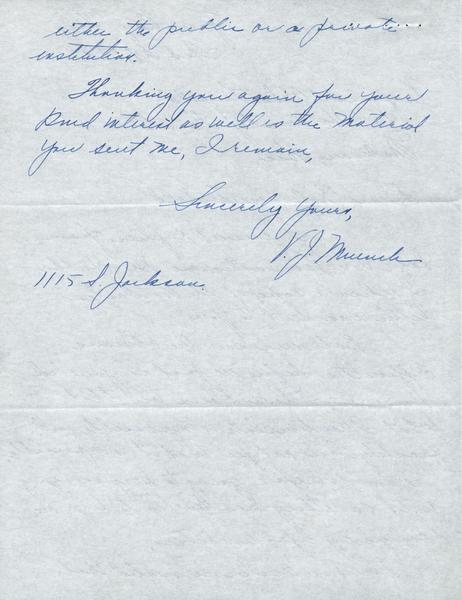 either the public or a private
institution.
Thanking you again for your
kind interest as well as the material
you sent me, I remain,
Sincerely Yours,
V. J. Muench
1115 S. Jackson.